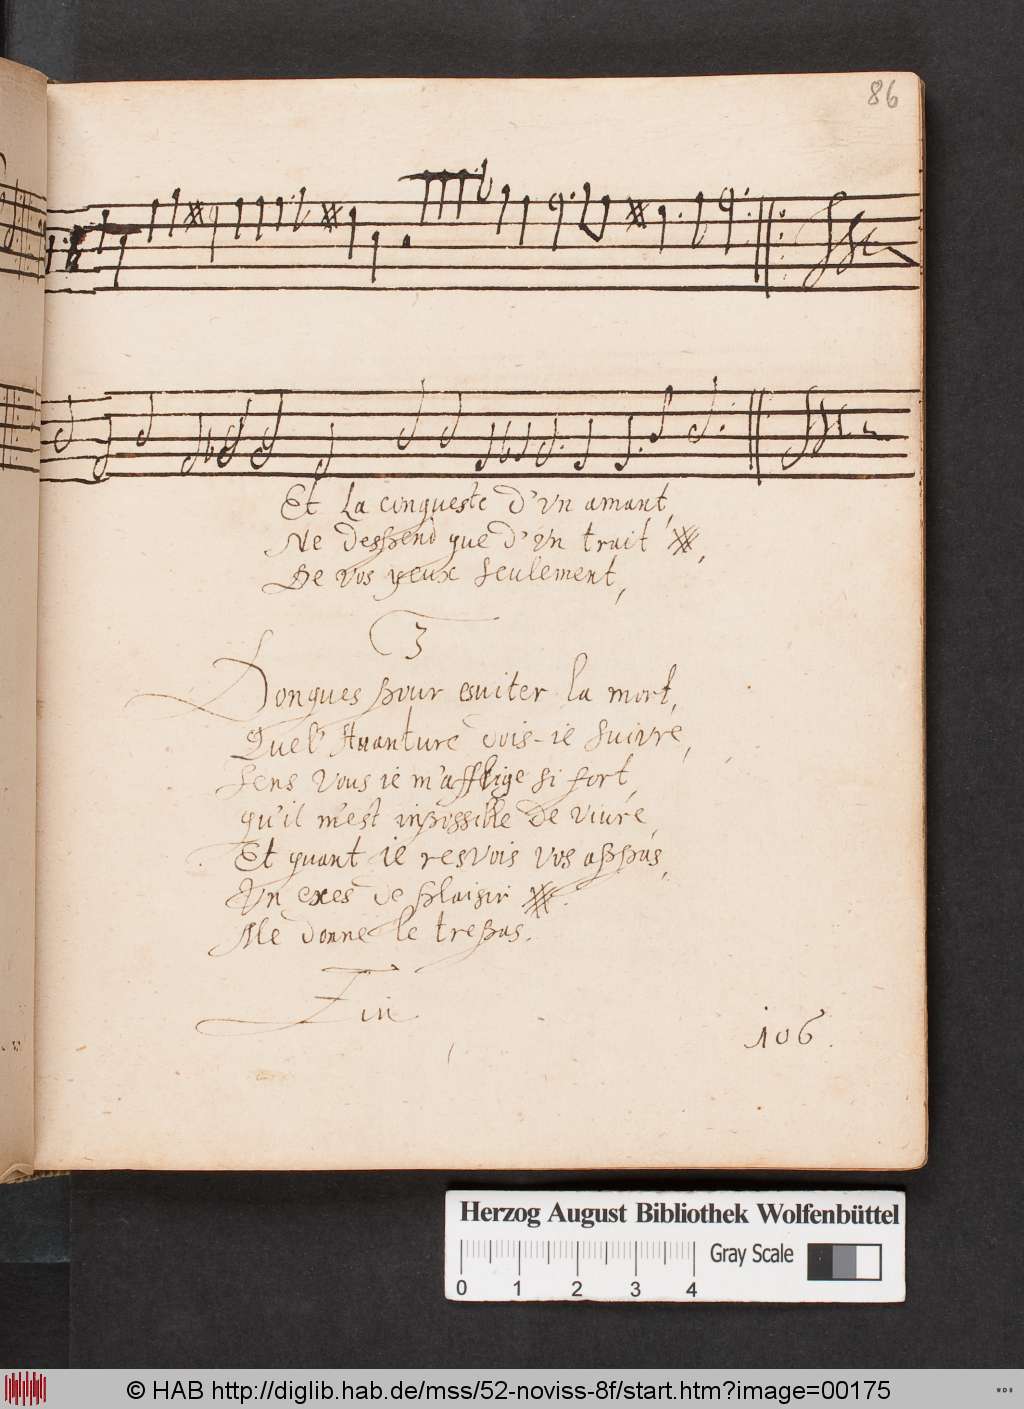 86
Et La cinqueste d'vn amant,
Ne despend que d'vn trait ,
De vos yeux seulement,
3
Donques pour esuiter la mort,
Quel' Auanture dois-ie suivre,
Sens vous ie m'afflige si fort,
qu'il m'est inpossible de vivre,
Et quant ie resvois vos appas,
Vn exes de plaisir .
Me donne le trespas.
Fin
106.
Herzog August Bibliothek Wolfenbüttel
Gray Scale
0 1 2 3 4
© HAB http://diglib.hab.de/mss/52-noviss-8f/start.htm?image=00175